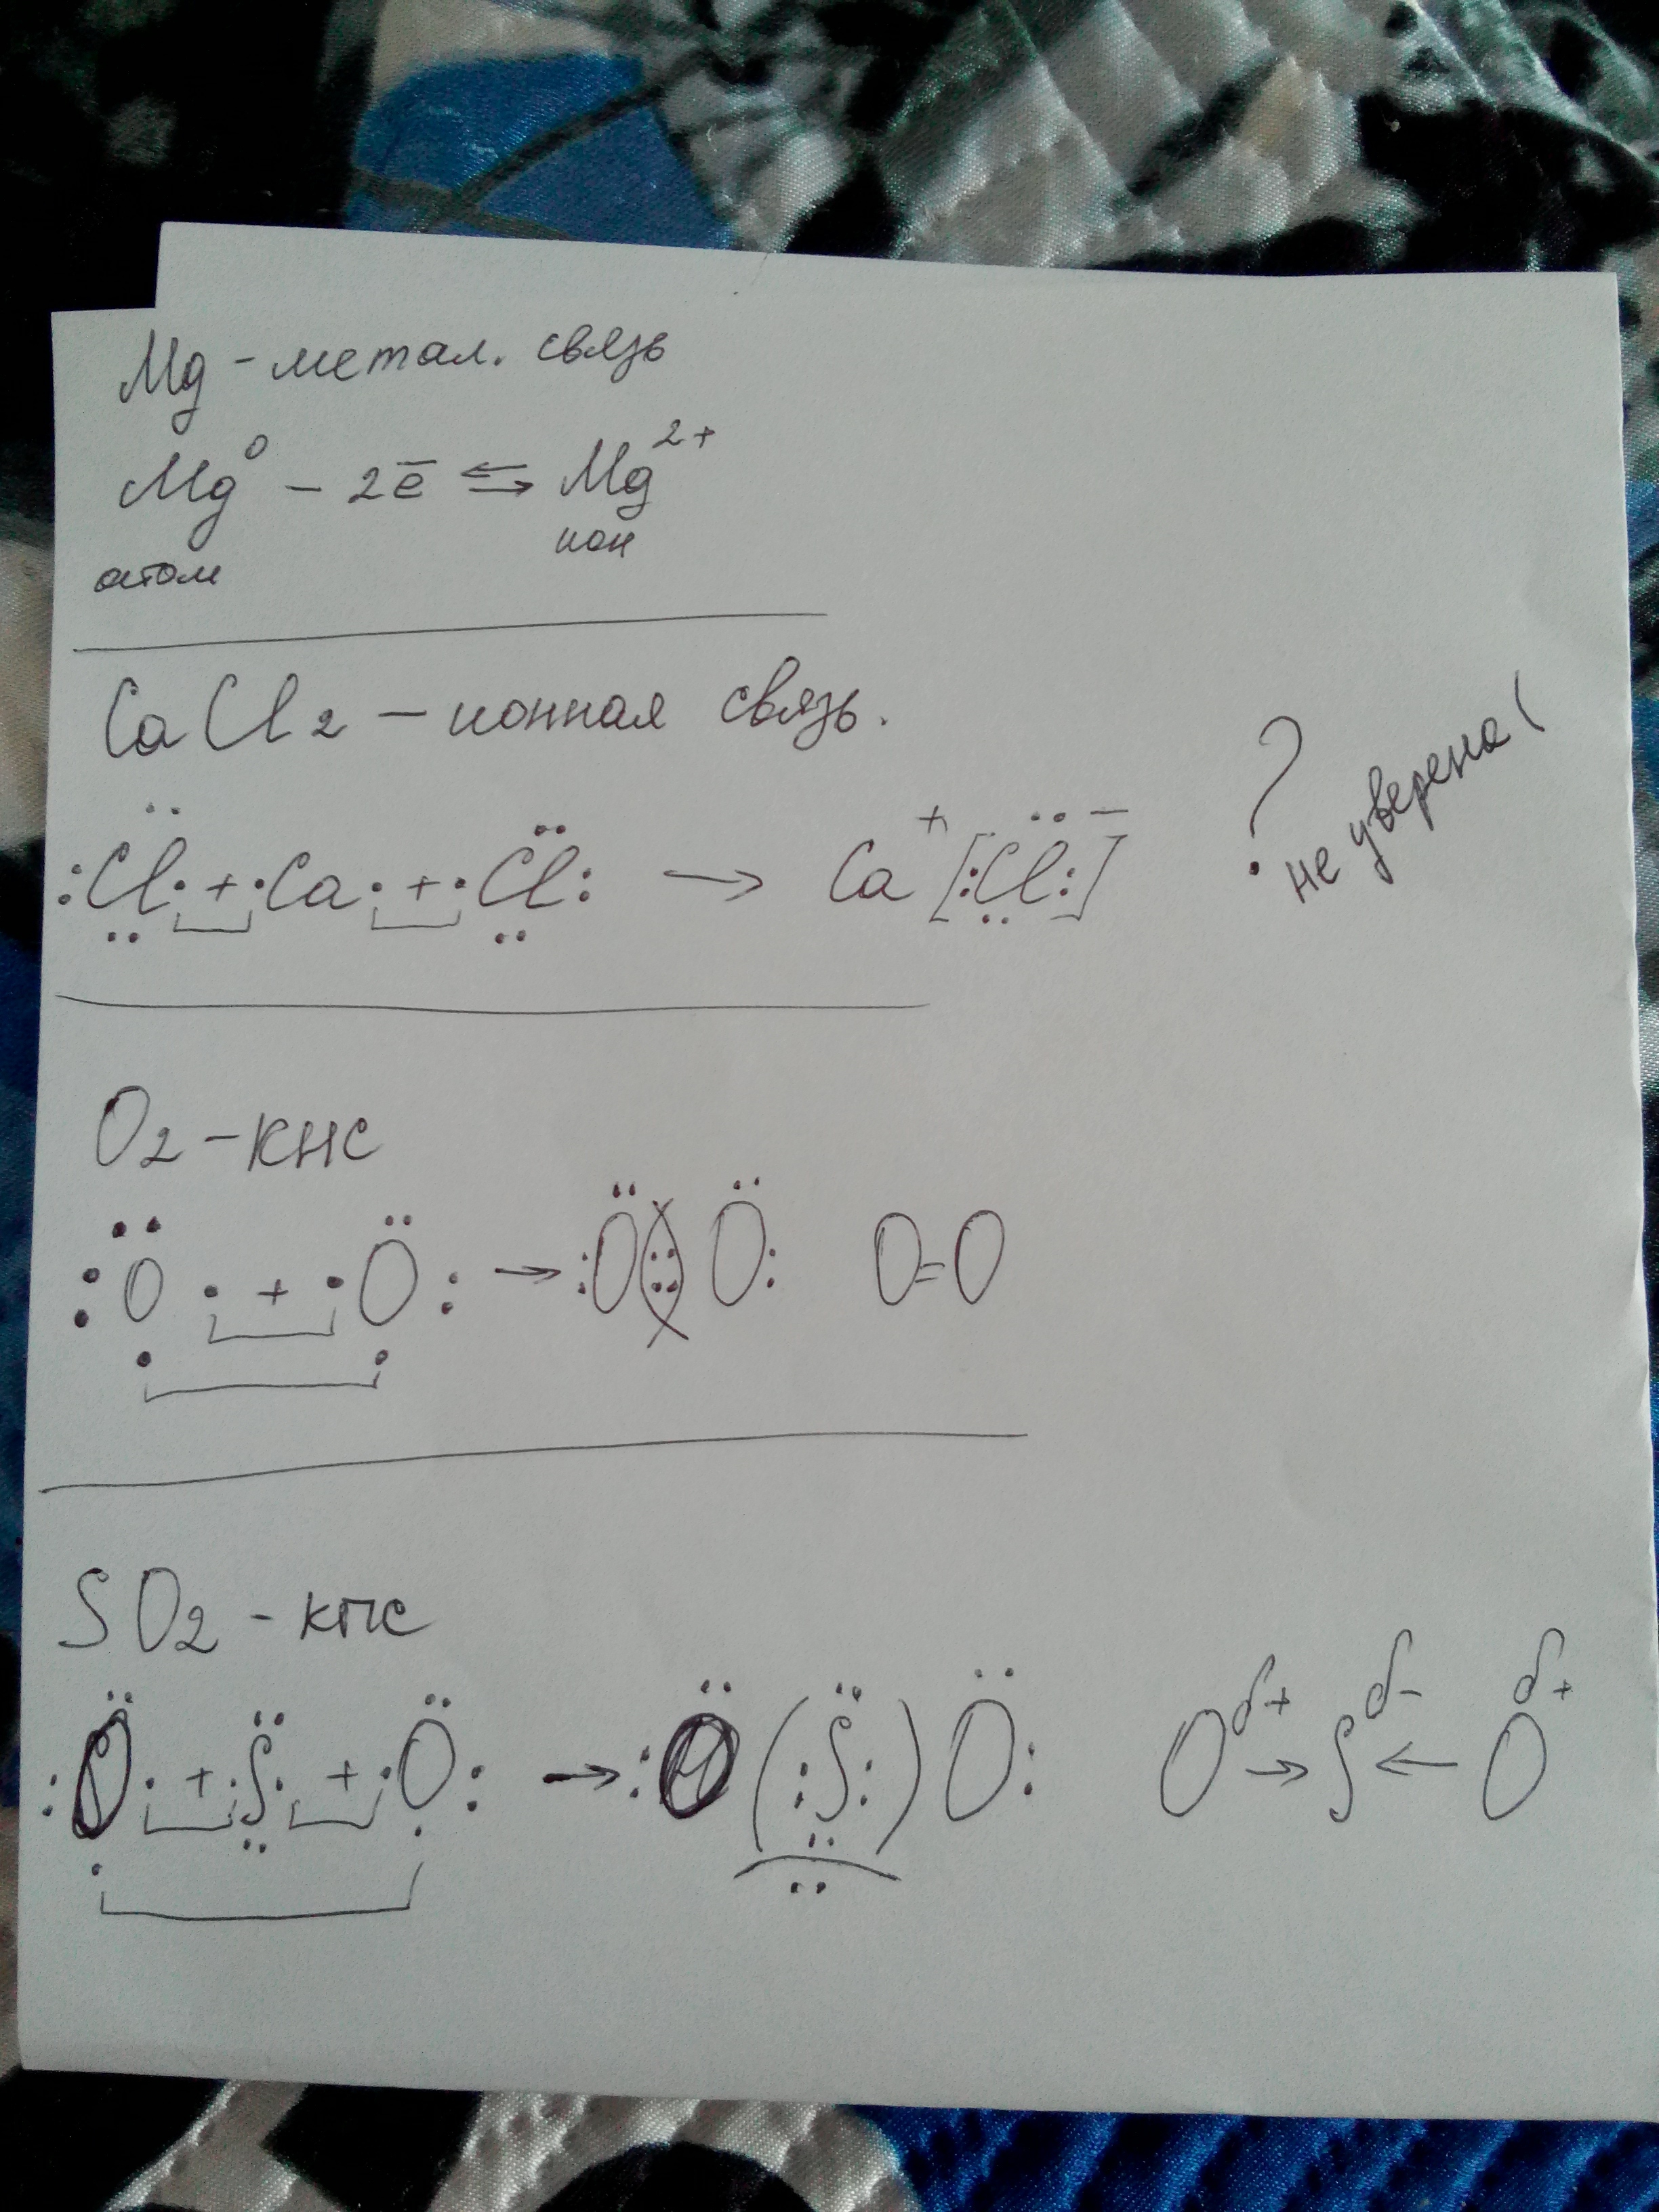 Mg - метал. связь
Mg⁰ - 2ē ⇄ Mg²⁺
атом ион
CaCl₂ - ионная связь.
:Cl· + ·Ca· + ·Cl: → Ca⁺ [:Cl:]⁻ ? не уверена (
O₂ - кнс
:O· + ·O: → :O(::)O: O=O
SO₂ - кпс
:O· + ·S· + ·O: → :O(:S:)O: Oδ+ → Sδ- ← Oδ+